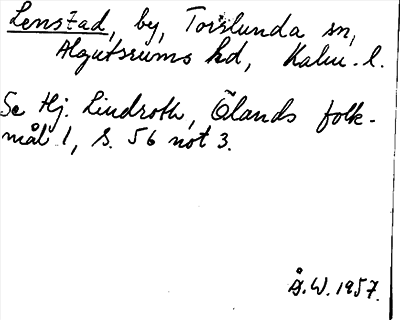 Lenstad, by, Torslunda sn,
Algutsrums hd, Kalm. l.
Se Hj. Lindroth, Ölands folk-
mål 1, s. 56 not 3.
Å.W. 1957.